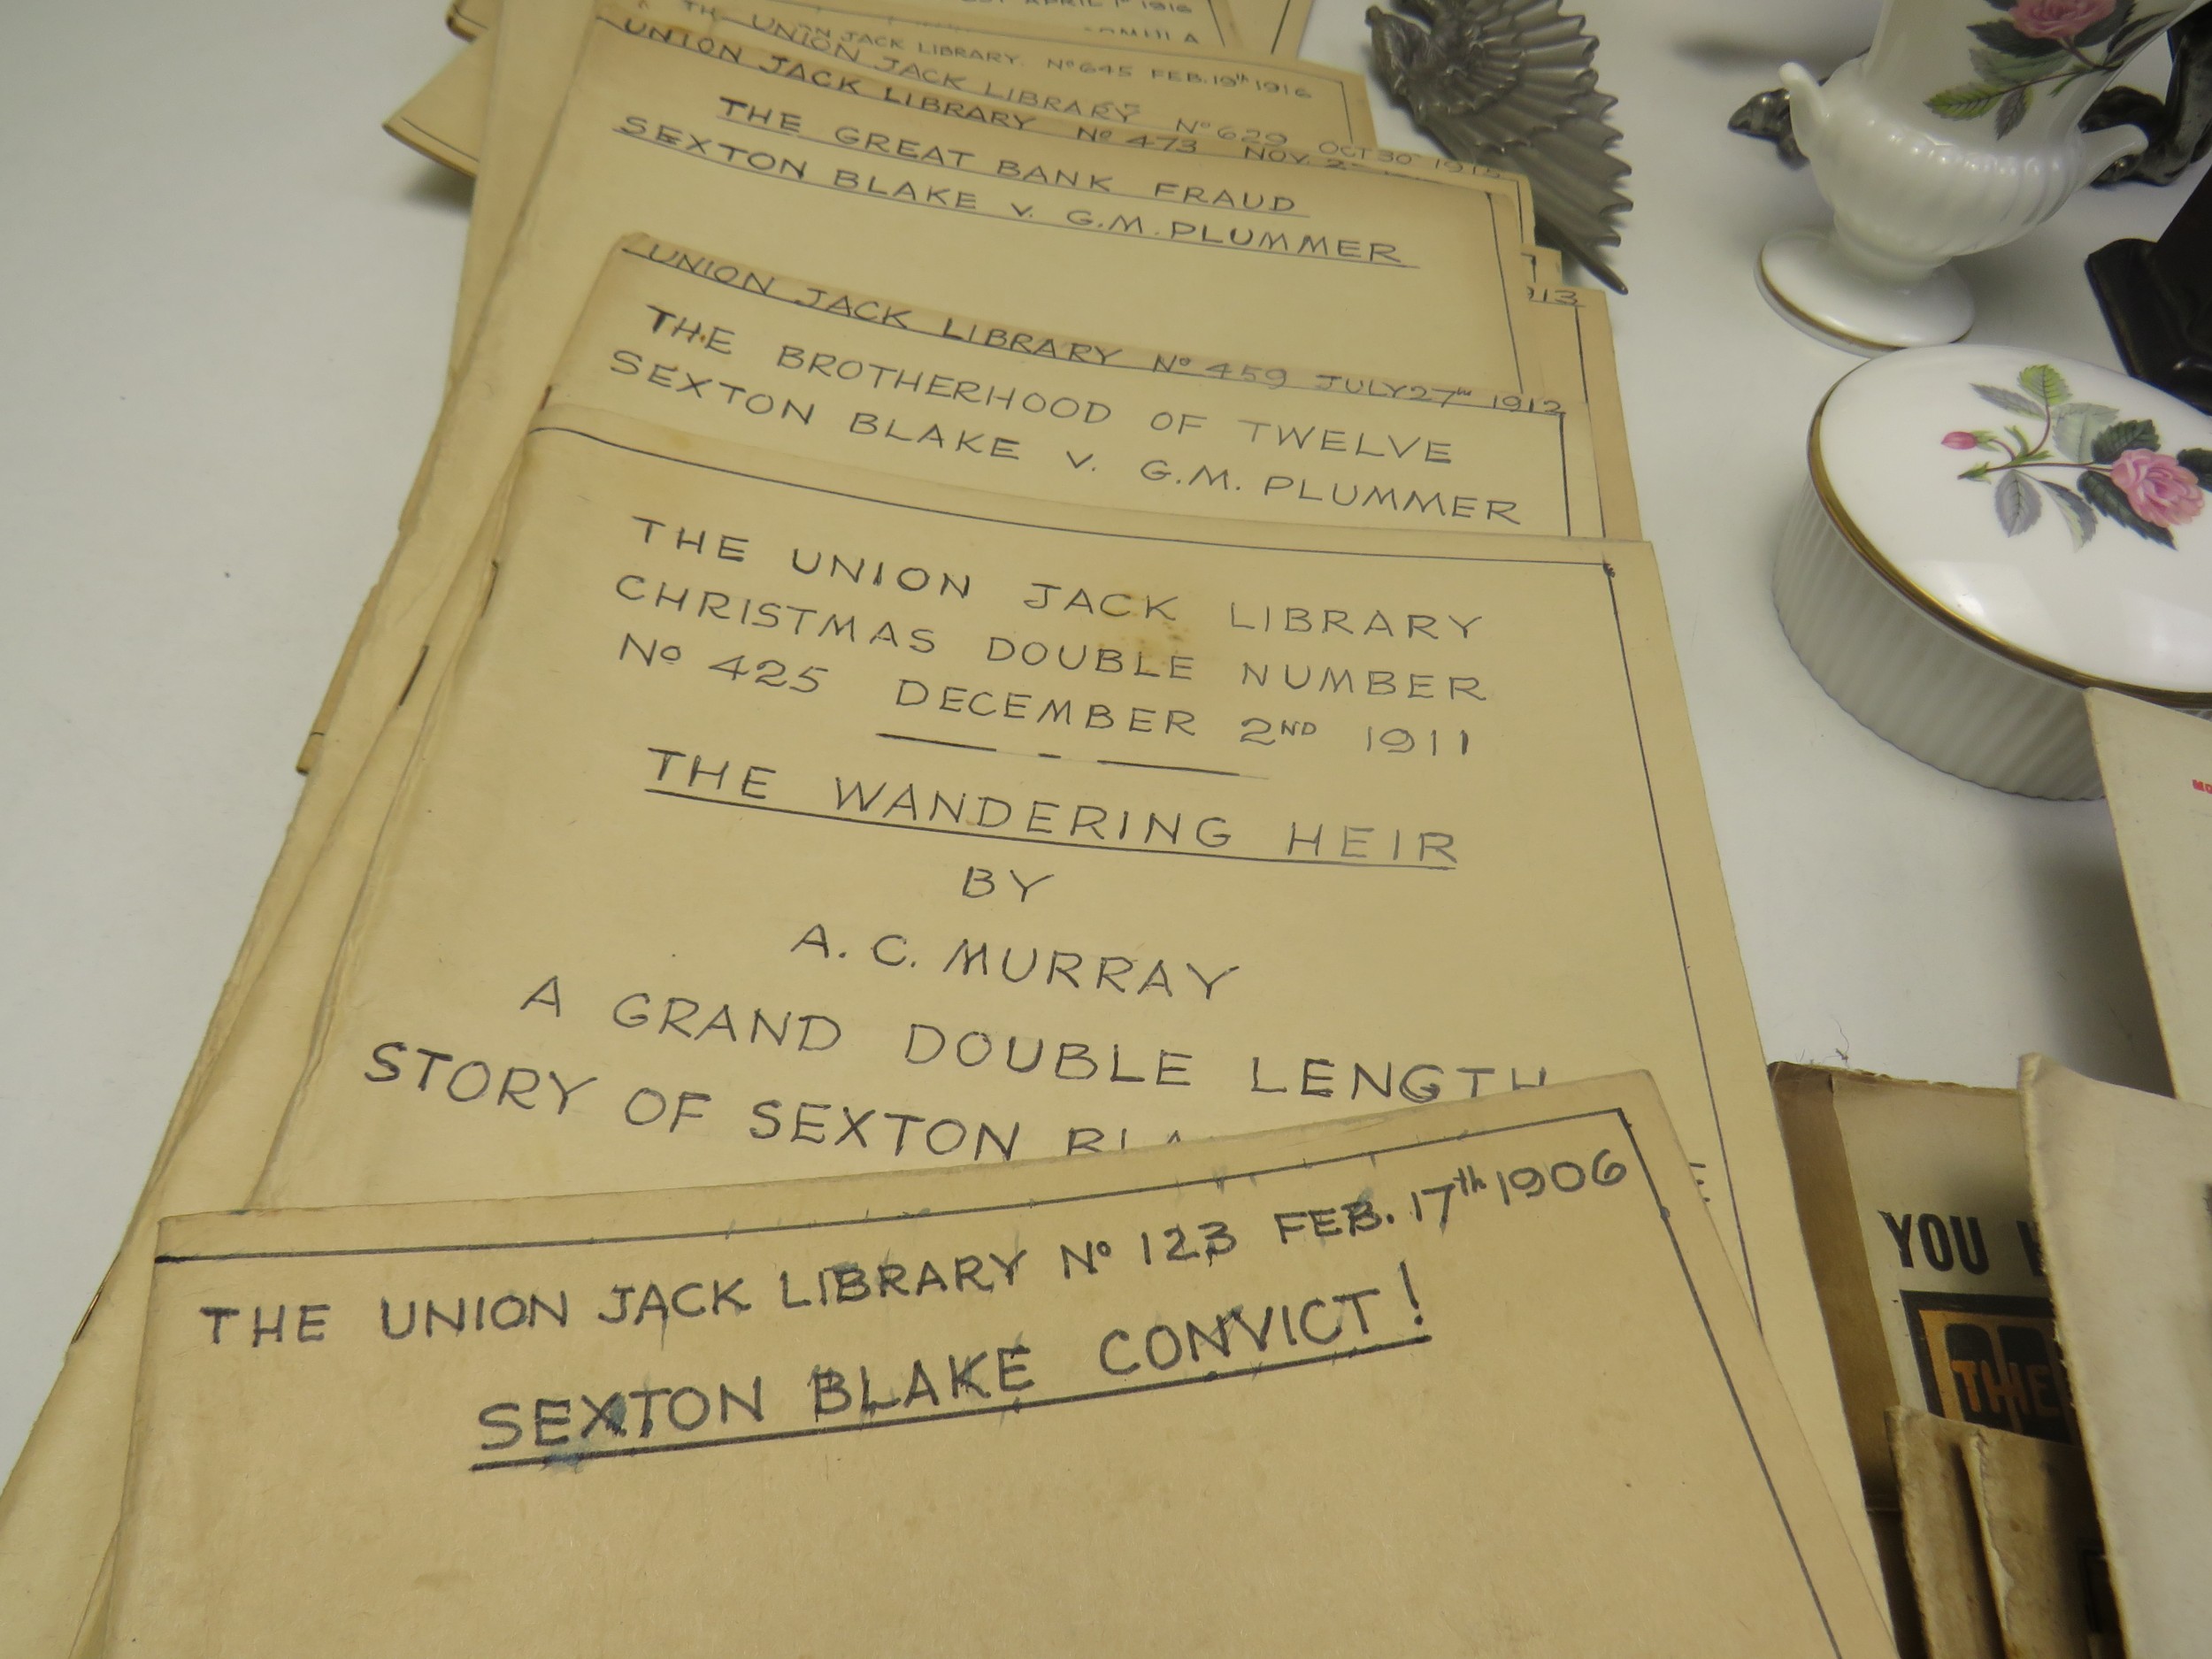 APRIL 1st 1916
UNION JACK LIBRARY No 645 FEB. 19th 1916
UNION JACK LIBRARY No 629 OCT 30 1915
UNION JACK LIBRARY No 473 NOV. 2
THE GREAT BANK FRAUD
SEXTON BLAKE v. G.M. PLUMMER
913
UNION JACK LIBRARY No 459 JULY 27th 1912
THE BROTHERHOOD OF TWELVE
SEXTON BLAKE v. G.M. PLUMMER
THE UNION JACK LIBRARY
CHRISTMAS DOUBLE NUMBER
No 425 DECEMBER 2ND 1911
THE WANDERING HEIR
BY
A. C. MURRAY
A GRAND DOUBLE LENGTH
STORY OF SEXTON BLA
THE UNION JACK LIBRARY No 123 FEB. 17th 1906
SEXTON BLAKE CONVICT!
YOU
THE